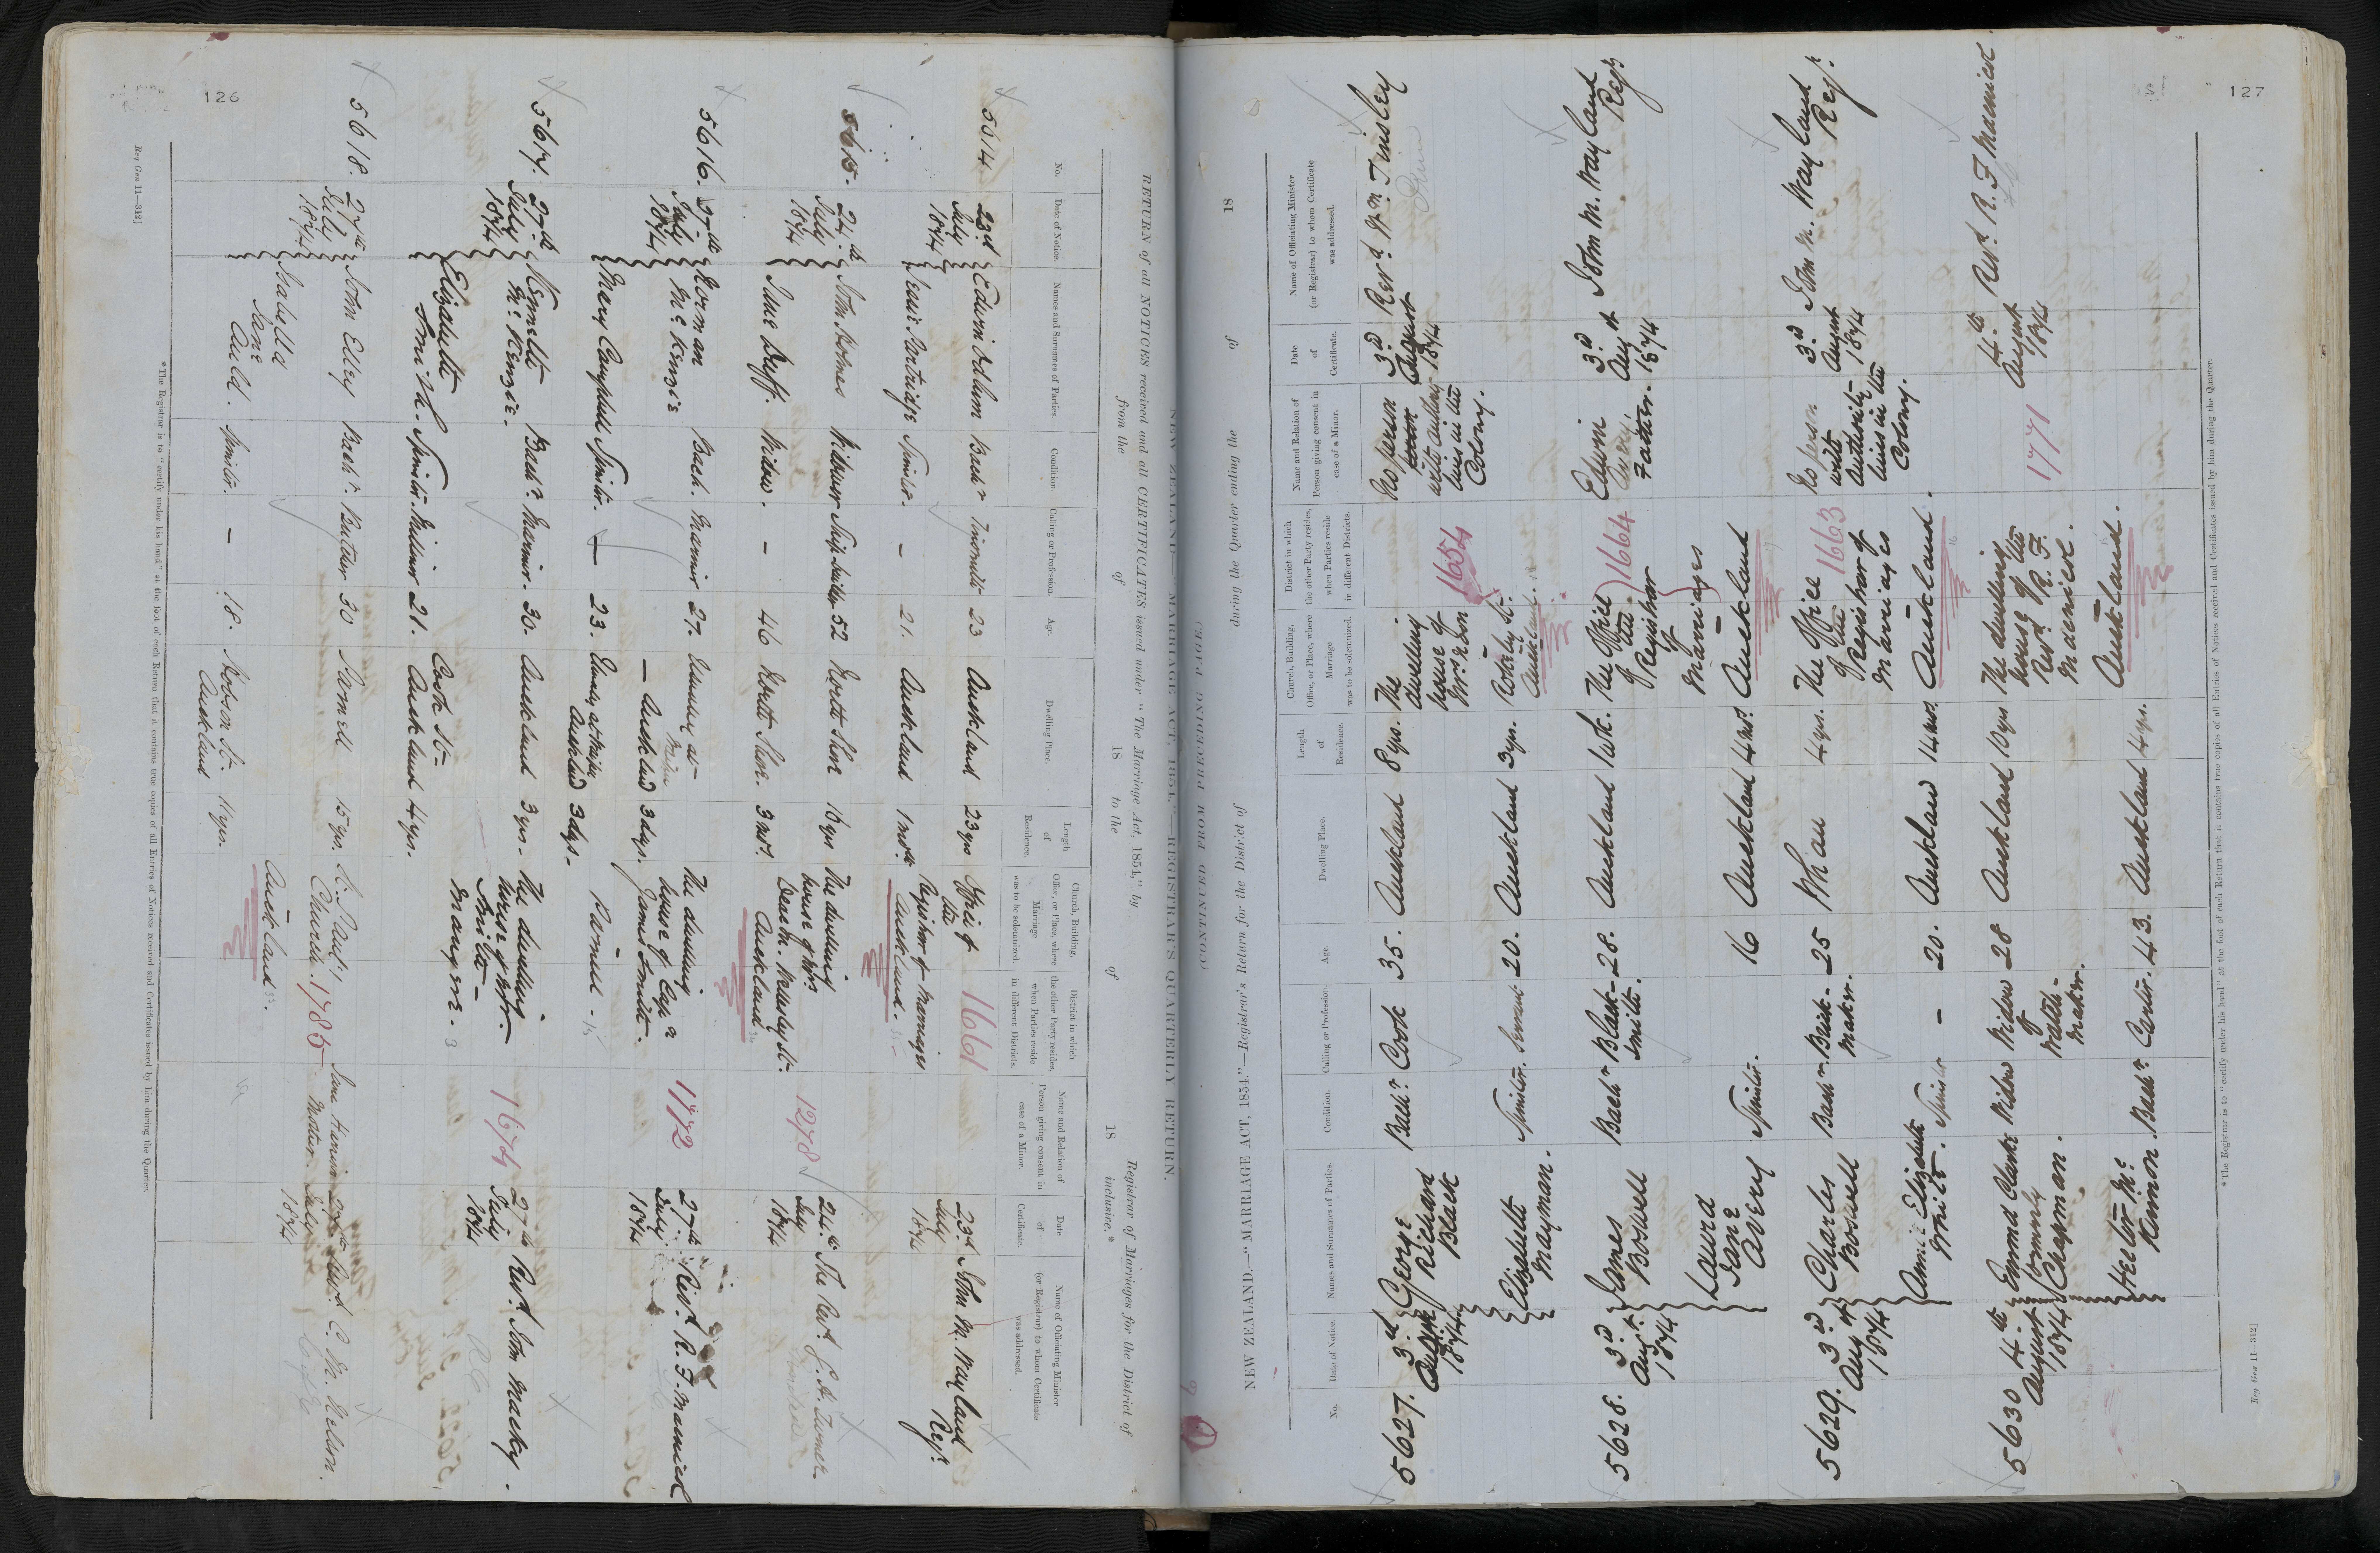 126
NEW ZEALAND.—"MARRIAGE ACT, 1854."—REGISTRAR'S QUARTERLY RETURN.
RETURN of all NOTICES received and all CERTIFICATES issued under "The Marriage Act, 1854," by Registrar of Marriages for the District of
from the of 18 to the of 18 inclusive.*
No. Date of Notice. Names and Surnames of Parties. Condition. Calling or Profession. Age. Dwelling Place. Length of Residence. Church, Building, Office, or Place, where Marriage was to be solemnized. District in which the other Party resides, when Parties reside in different Districts. Name and Relation of Person giving consent in case of a Minor. Date of Certificate. Name of Officiating Minister (or Registrar) to whom Certificate was addressed.
5614 23d July 1874 Edwin Odlum Bachr 23 Auckland 23 yrs Office of the Registrar of Marriages Auckland. 1661 23d July 1874 John M. Wayland Regr.
Partridge Spinstr. – 21. Auckland 1 mth.
5615. 24th July 1874 John Holmes Widower Ship builder 52 North Shore 16 yrs The dwelling house of Mr. Wellesley St. Auckland 1278 24th July 1874 The Revd.
Jane Duff. Widow. – 46 North Shore. 3 mos.
5616. 27th July 1874 Norman McKenzie Bach. Mariner 27. Auckland 3 days. The dwelling house of James Smith. Parnell 1772 27th July 1874 Revd. R. F. Macnicol
Mary Campbell Spinstr. – 23. Auckland 3 dys.
5617. 27th July 1874 Kenneth McKenzie. Bachr. Mariner. 30. Auckland 3 yrs. The dwelling house of Mr. Smith – Mangere. 1674 27th July 1874 Revd. John Macky.
Elizabeth Smith. Spinstr. Milliner 21. Cook St. Auckland 4 yrs.
5618. 27th July 1874 John Elley Bachr. Butcher 30 Parnell 15 yrs. St. Paul's Church. Auckland. 1785 Mother. July 1874 Revd. C. M. Nelson.
Isabella Jane Auld. Spinstr. – 18. Hobson St. Auckland 11 yrs.
*The Registrar is to "certify under his hand" at the foot of each Return that it contains true copies of all Entries of Notices received and Certificates issued by him during the Quarter.
Reg Gen 11—312]
127
(CONTINUED FROM PRECEDING PAGE.)
NEW ZEALAND.—"MARRIAGE ACT, 1854."—Registrar's Return for the District of during the Quarter ending the of 18
No. Date of Notice. Names and Surnames of Parties. Condition. Calling or Profession. Age. Dwelling Place. Length of Residence. Church, Building, Office, or Place, where Marriage was to be solemnized. District in which the other Party resides, when Parties reside in different Districts. Name and Relation of Person giving consent in case of a Minor. Date of Certificate. Name of Officiating Minister (or Registrar) to whom Certificate was addressed.
5627. 3d August 1874 George Richard Black Bachr. Cook 35. Auckland 8 yrs. The dwelling house of Mrs. St. Auckland. 1654 No person with authority lives in the Colony. 3d August 1874 Revd. Wm. Tinsley
Elizabeth Mayman. Spinstr. Servant 20. Auckland 3 yrs.
5628. 3d Augt 1874 James Boswell Bachr Blacksmith. 28. Auckland 1 wk. The Office of the Registrar of Marriages Auckland 1664 Edwin Avery Father. 3d Augt 1874 John M. Wayland Regr.
Laura Jane Avery Spinstr. 16 Auckland
5629. 3d Augt 1874 Charles Boswell Bachr. Brickmaker. 25 Whau 4 yrs. The Office of the Registrar of Marriages Auckland. 1663 No person with authority lives in the Colony. 3d August 1874 John M. Wayland Regr.
Annie Elizabeth White. Spinster – 20. Auckland
5630 4th August 1874 Emma Clark formerly Chapman. Widow Widow of 28 Auckland 10 yrs The dwelling house of the Revd. R. F. Macnicol. Auckland. 1771 4th August 1874 Revd. R. F. Macnicol.
Hector McKinnon. Bachr Carter. 43. Auckland 4 yrs.
*The Registrar is to "certify under his hand" at the foot of each Return that it contains true copies of all Entries of Notices received and Certificates issued by him during the Quarter.
Reg Gen 11—312]